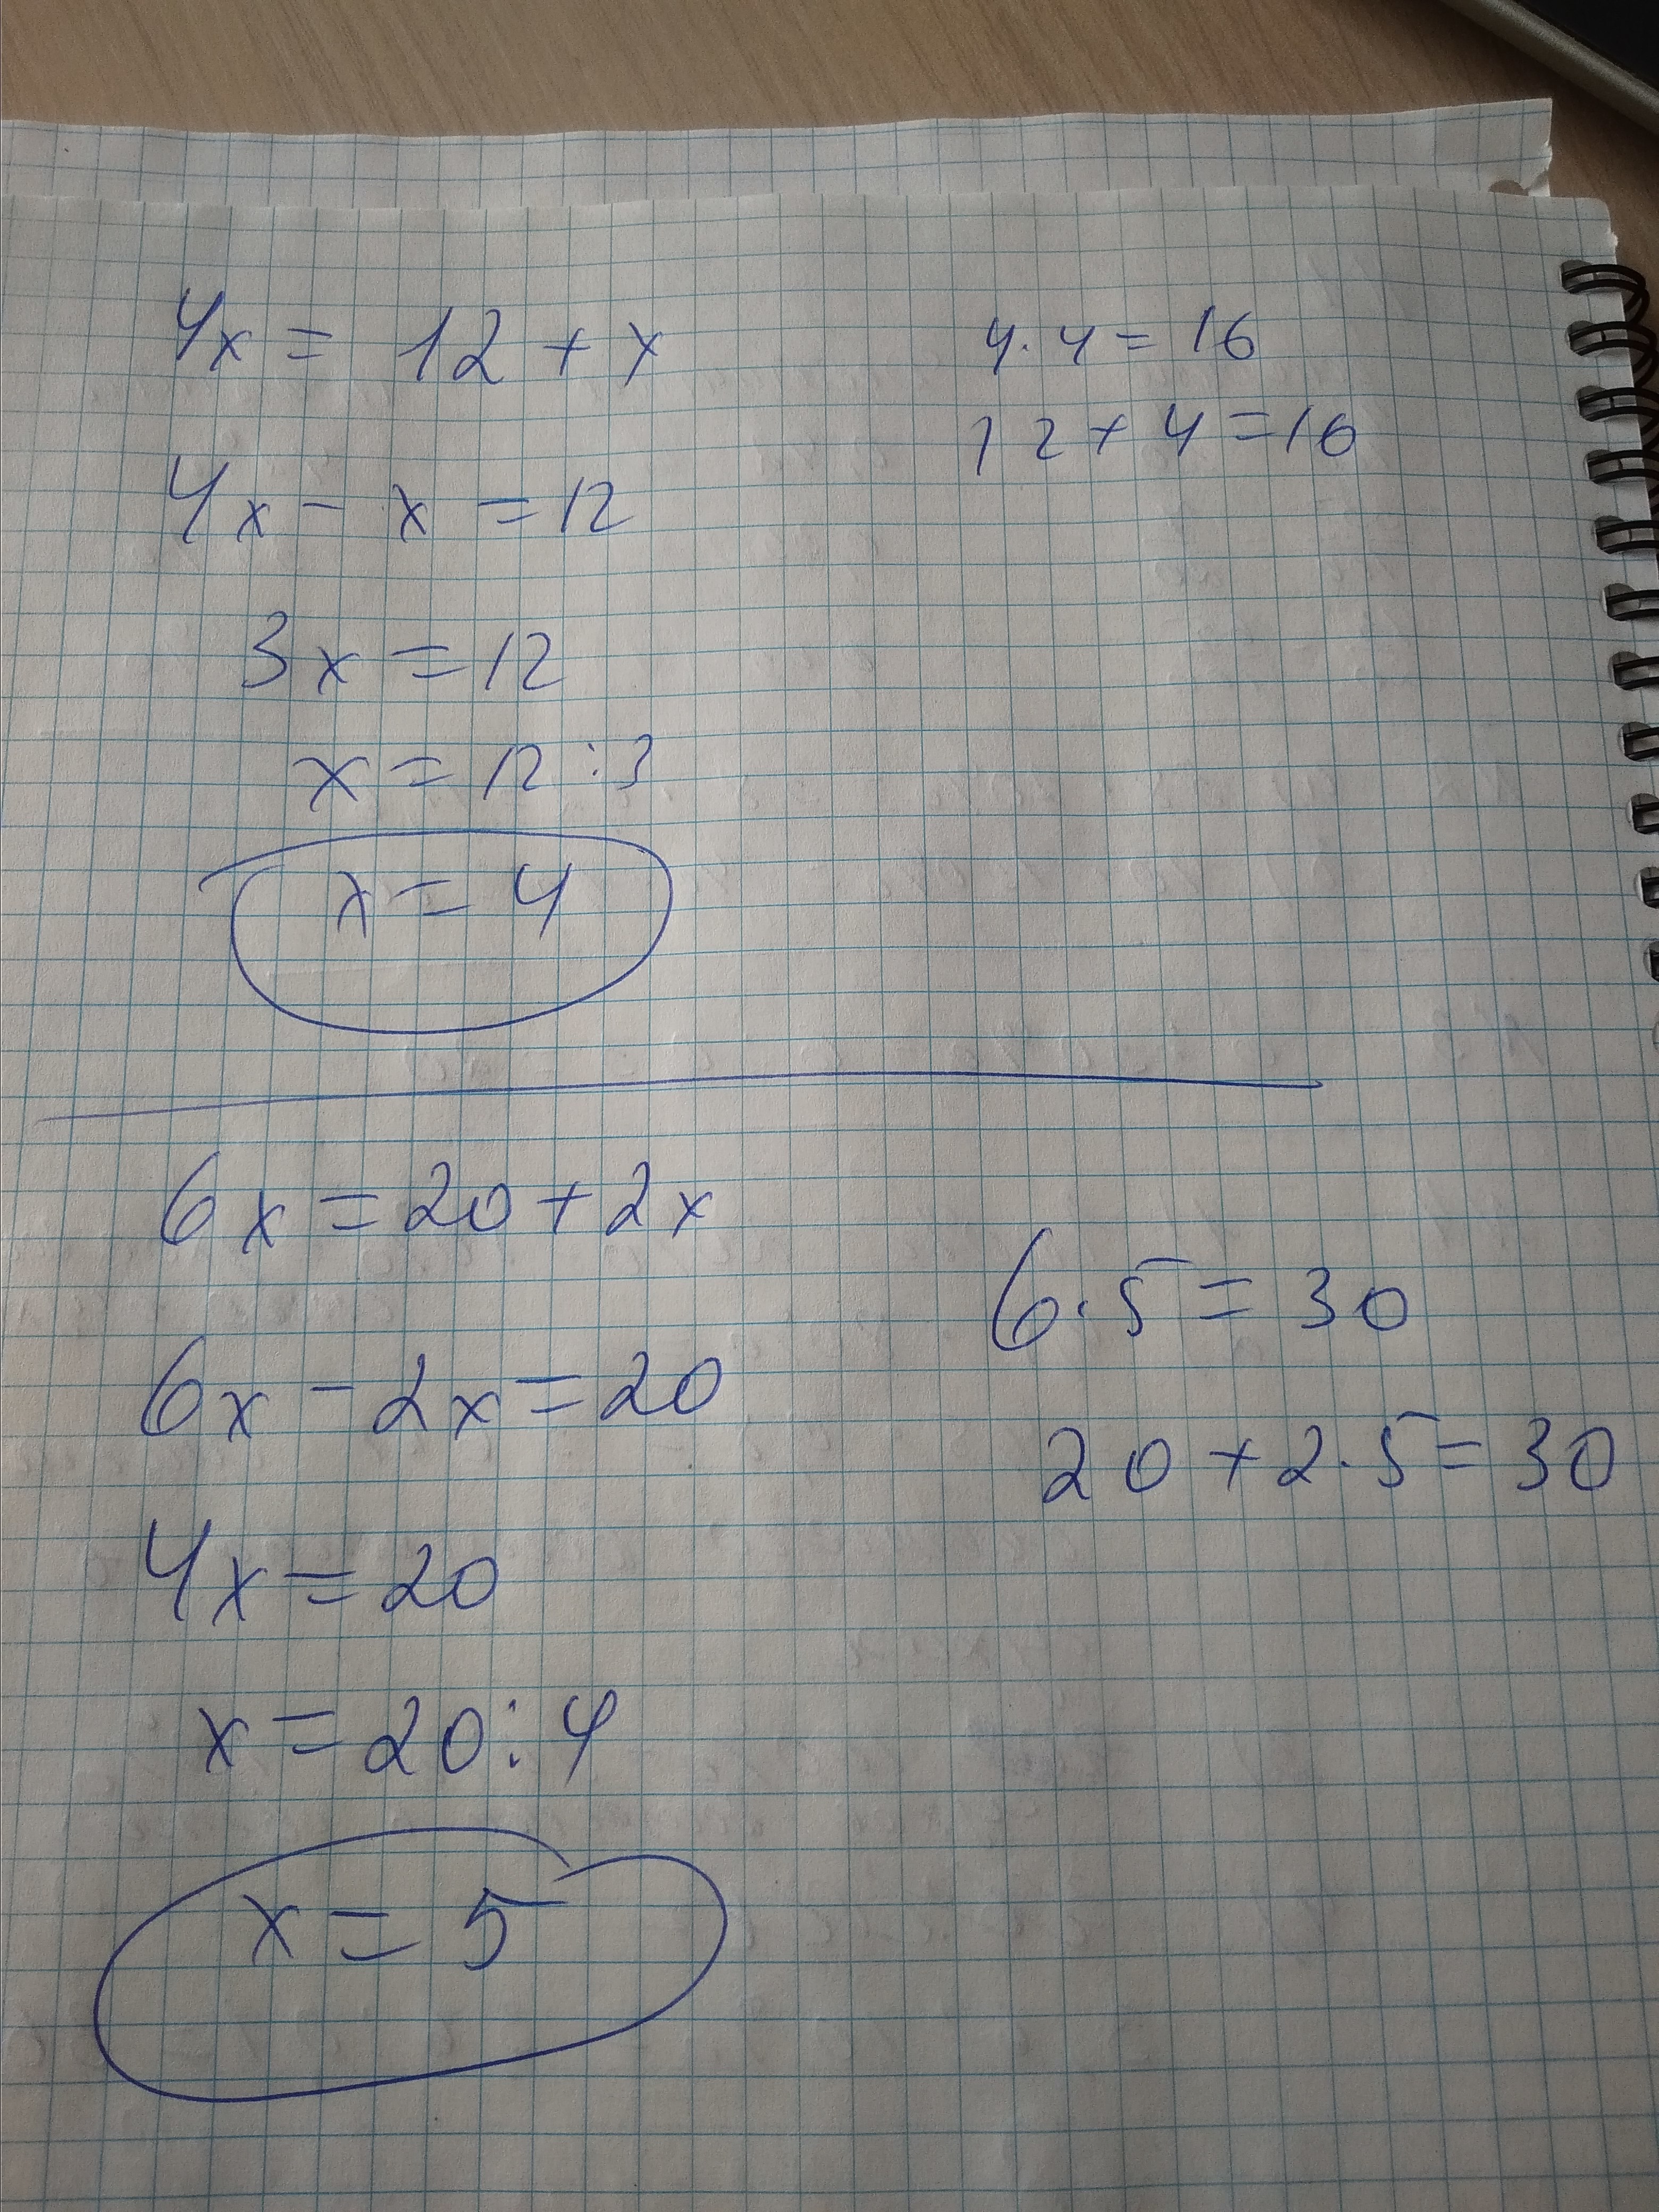 4x = 12 + x
4x - x = 12
3x = 12
x = 12 : 3
x = 4
4 · 4 = 16
12 + 4 = 16
6x = 20 + 2x
6x - 2x = 20
4x = 20
x = 20 : 4
x = 5
6 · 5 = 30
20 + 2 · 5 = 30